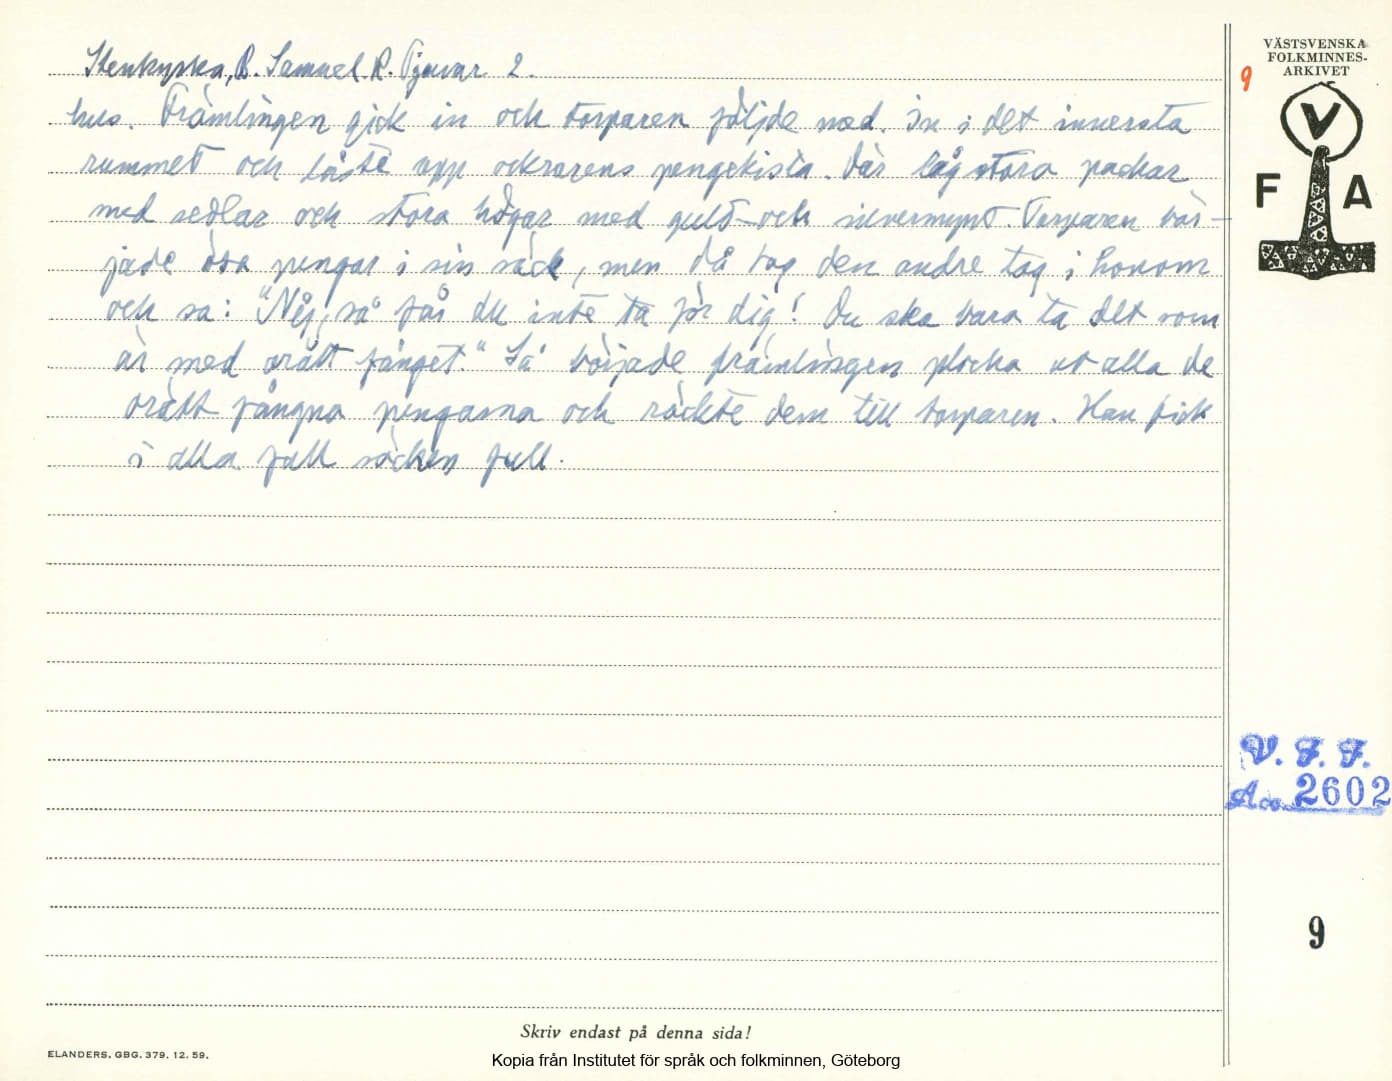 Stenkyrka, B. Samuel R. Tjuvar 2.
hus. Främlingen gick in och torparen följde med. In i det innersta
rummet och låste upp ockrarens pengekista. Där låg stora packar
med sedlar och stora högar med guld- och silvermynt. Torparen bör-
jade ösa pengar i sin säck, men då tog den andre tag i honom
och sa: "Nej, så får du inte ta för dig! Du ska bara ta det som
är med orätt fånget." Så började främlingen plocka ut alla de
orätt fångna pengarna och räckte dem till torparen. Han fick
i alla fall säcken full.
VÄSTSVENSKA
FOLKMINNES-
ARKIVET
9
V
F A
V. F. F.
Acc. 2602
9
Skriv endast på denna sida!
ELANDERS, GBG. 379. 12. 59.
Kopia från Institutet för språk och folkminnen, Göteborg